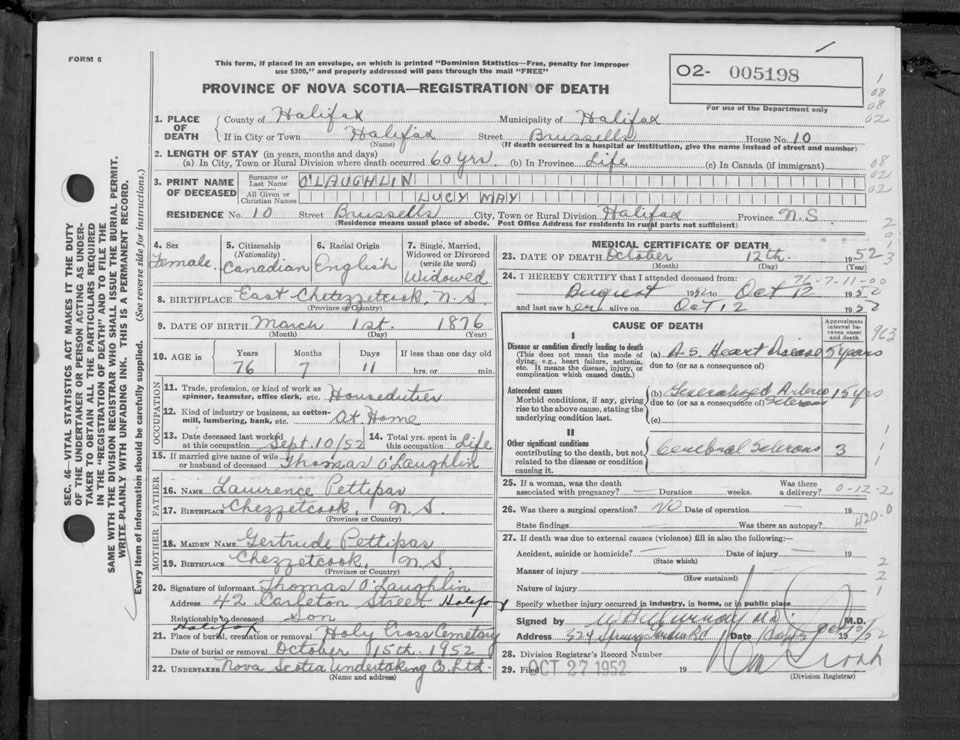 FORM 6
This form, if placed in an envelope, on which is printed "Dominion Statistics—Free, penalty for improper
use $300," and properly addressed will pass through the mail "FREE"
PROVINCE OF NOVA SCOTIA—REGISTRATION OF DEATH
O2- 005198
For use of the Department only
1. PLACE OF DEATH
County of Halifax Municipality of Halifax
If in City or Town Halifax Street Brussells House No. 10
(Name) (If death occurred in a hospital or institution, give the name instead of street and number)
2. LENGTH OF STAY (in years, months and days)
(a) In City, Town or Rural Division where death occurred 60 yrs. (b) In Province Life (c) In Canada (if immigrant)
3. PRINT NAME OF DECEASED
Surname or Last Name O'LAUGHLIN
All Given or Christian Names LUCY MAY
RESIDENCE No. 10 Street Brussells City, Town or Rural Division Halifax Province N.S.
(Residence means usual place of abode. Post Office Address for residents in rural parts not sufficient)
SEC. 46- VITAL STATISTICS ACT MAKES IT THE DUTY
OF THE UNDERTAKER OR PERSON ACTING AS UNDER-
TAKER TO OBTAIN ALL THE PARTICULARS REQUIRED
IN THE "REGISTRATION OF DEATH" AND TO FILE THE
SAME WITH THE DIVISION REGISTRAR WHO SHALL ISSUE THE BURIAL PERMIT.
WRITE PLAINLY WITH UNFADING INK. THIS IS A PERMANENT RECORD.
Every item of information should be carefully supplied. (See reverse side for instructions.)
4. Sex Female
5. Citizenship (Nationality) Canadian
6. Racial Origin English
7. Single, Married, Widowed or Divorced (write the word) Widowed
8. BIRTHPLACE East Chezzetcook, N.S.
(Province or Country)
9. DATE OF BIRTH March 1st. 1876
(Month) (Day) (Year)
10. AGE in Years Months Days If less than one day old
76 7 11 hrs. or min.
OCCUPATION
11. Trade, profession, or kind of work as
spinner, teamster, office clerk, etc. Houseduties
12. Kind of industry or business, as cotton-
mill, lumbering, bank, etc. At Home
13. Date deceased last worked
at this occupation Sept. 10/52 14. Total yrs. spent in this occupation Life
15. If married give name of wife
or husband of deceased Thomas O'Laughlin
FATHER
16. NAME Lawrence Pettipas
17. BIRTHPLACE Chezzetcook, N.S.
(Province or Country)
MOTHER
18. MAIDEN NAME Gertrude Pettipas
19. BIRTHPLACE Chezzetcook, N.S
(Province or Country)
20. Signature of informant Thomas O'Laughlin
Address 42 Carleton Street Halifax
Relationship to deceased Son
Halifax
21. Place of burial, cremation or removal Holy Cross Cemetary
Date of burial or removal October 15th. 1952
22. UNDERTAKER Nova Scotia Undertaking Co. Ltd.
(Name and address)
MEDICAL CERTIFICATE OF DEATH
23. DATE OF DEATH October 12th. 1952
(Month) (Day) (Year)
24. I HEREBY CERTIFY that I attended deceased from:
76-7-11-00
August 1952 to Oct 12 1952
and last saw her alive on Oct 12 1952
CAUSE OF DEATH
Approximate interval between onset and death
I
Disease or condition directly leading to death
(This does not mean the mode of
dying, e.g., heart failure, asthenia,
etc. It means the disease, injury, or
complication which caused death.)
(a) A.S. Heart Disease 5 years
due to (or as a consequence of)
Antecedent causes
Morbid conditions, if any, giving
rise to the above cause, stating the
underlying condition last.
(b) Generalized Arterio 15 yrs
due to (or as a consequence of) sclerosis
(c)
II
Other significant conditions
contributing to the death, but not
related to the disease or condition
causing it.
Cerebral Sclerosis 3
25. If a woman, was the death
associated with pregnancy? — Duration weeks. Was there a delivery? 0-12-2
26. Was there a surgical operation? NO Date of operation — 19
State findings Was there an autopsy?
420.0
27. If death was due to external causes (violence) fill in also the following:
Accident, suicide or homicide? — Date of injury — 19
(State which)
Manner of injury
(How sustained)
Nature of injury
Specify whether injury occurred in industry, in home, or in public place
Signed by M.D.
Address Date 19
28. Division Registrar's Record Number
29. Filed OCT 27 1952 19
(Division Registrar)
963